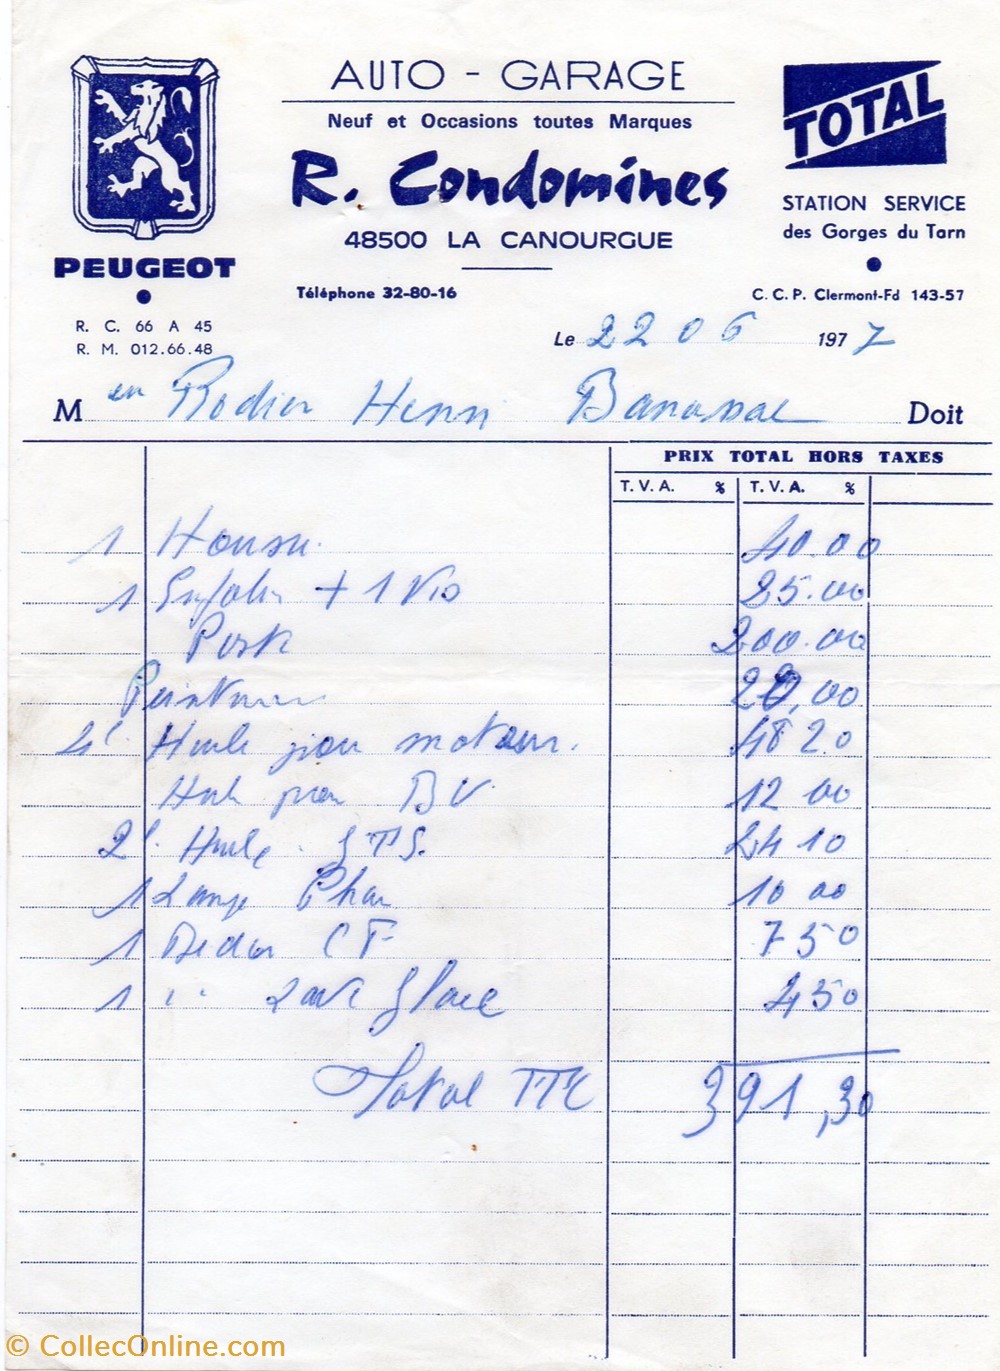 AUTO - GARAGE
Neuf et Occasions toutes Marques
R. Condomines
48500 LA CANOURGUE
Téléphone 32-80-16
PEUGEOT
R. C. 66 A 45
R. M. 012.66.48
TOTAL
STATION SERVICE
des Gorges du Tarn
C. C. P. Clermont-Fd 143-57
Le 22 06 1977
M Rodier Henri Banassac Doit
PRIX TOTAL HORS TAXES
T. V. A. % T. V. A. %
1 Housse 40.00
1 + 1 Vis 25.00
200.00
Peinture 20,00
4l Huile pour moteur. 48 20
Huile pour BV 12 00
2l. Huile 24 10
1 Lampe Phare 10 00
1 CF 7 50
1 " Lave Glace 4 50
Total TTC 391,30
© CollecOnline.com